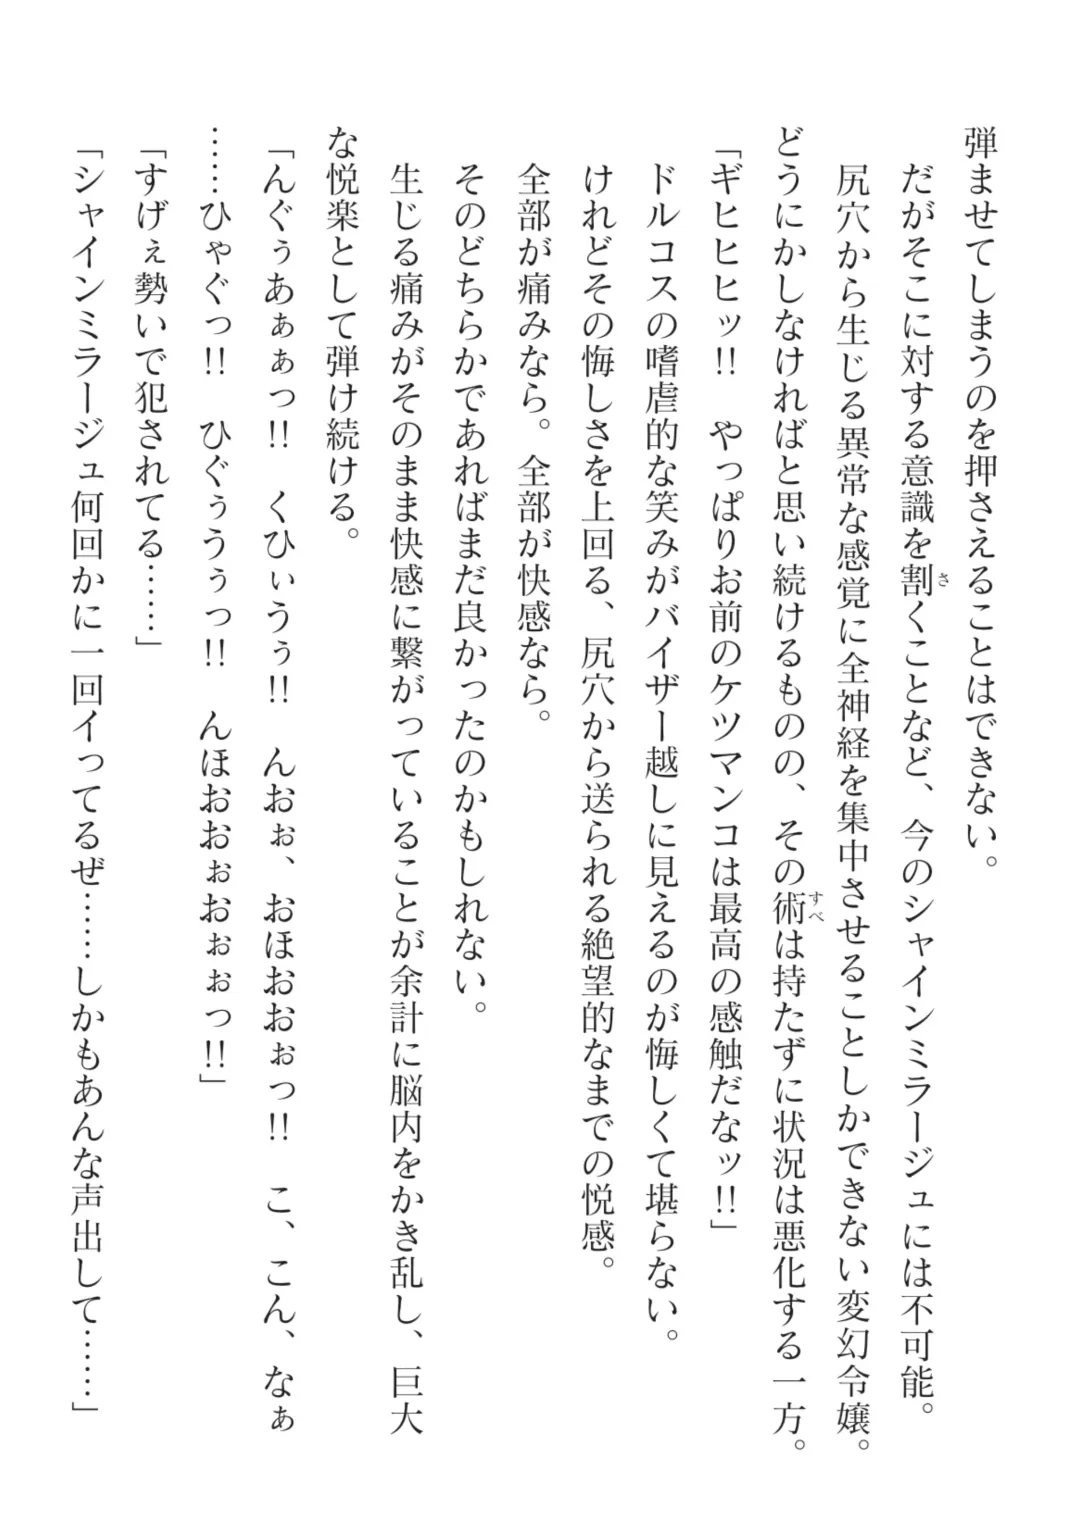 弾ませてしまうのを押さえることはできない。
だがそこに対する意識を割くことなど、今のシャインミラージュには不可能。
尻穴から生じる異常な感覚に全神経を集中させることしかできない変幻令嬢。
どうにかしなければと思い続けるものの、その術は持たずに状況は悪化する一方。
「ギヒヒヒッ!! やっぱりお前のケツマンコは最高の感触だなッ!!」
ドルコスの嗜虐的な笑みがバイザー越しに見えるのが悔しくて堪らない。
けれどその悔しさを上回る、尻穴から送られる絶望的なまでの悦感。
全部が痛みなら。全部が快感なら。
そのどちらかであればまだ良かったのかもしれない。
生じる痛みがそのまま快感に繋がっていることが余計に脳内をかき乱し、巨大
な悦楽として弾け続ける。
「んぐぅあぁぁっ!! くひぃうぅ!! んおぉ、おほおおぉっ!! こ、こん、なぁ
……ひゃぐっ!! ひぐぅうぅっ!! んほおおぉおぉぉっ!!」
「すげぇ勢いで犯されてる……」
「シャインミラージュ何回かに一回イってるぜ……しかもあんな声出して……」